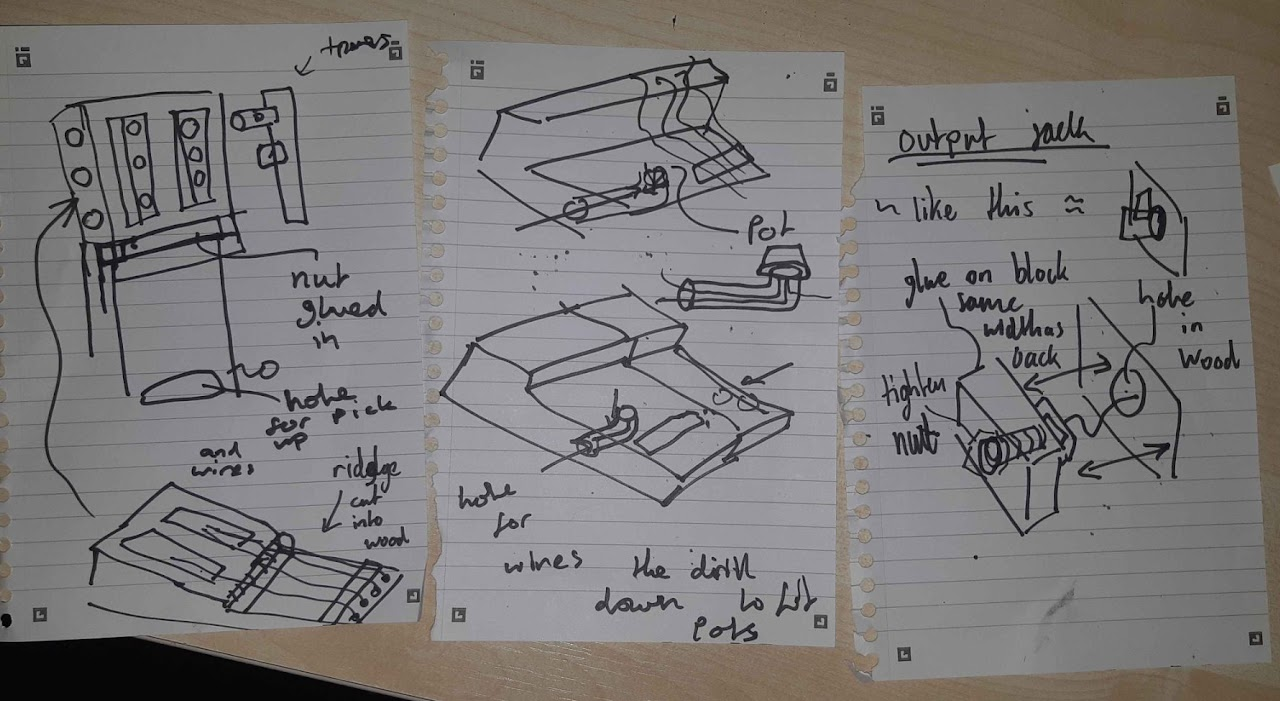 tuners
nut
glued
in
hole
for pick
up
and
wires
ridge
cut
into
wood
Pot
hole
for
wires
the drill
down to fit
Pots
output jack
~ like this ≈
glue on block
same
width as
back
hole
in
wood
tighten
nut